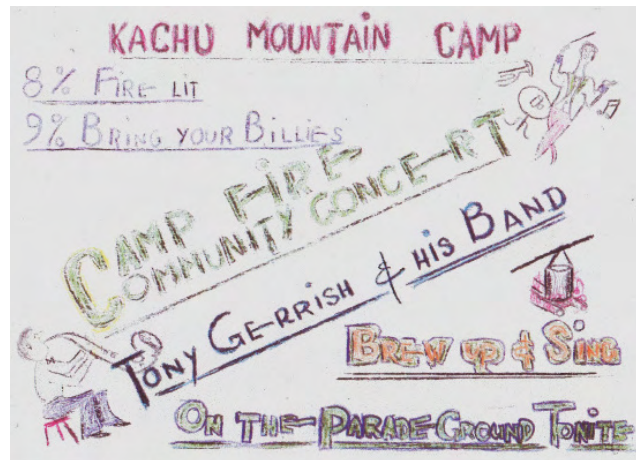 KACHU MOUNTAIN CAMP
8% FIRE LIT
9% BRING YOUR BILLIES
CAMP FIRE
COMMUNITY CONCERT
TONY GERRISH & HIS BAND
BREW UP & SING
ON THE PARADE GROUND TONITE